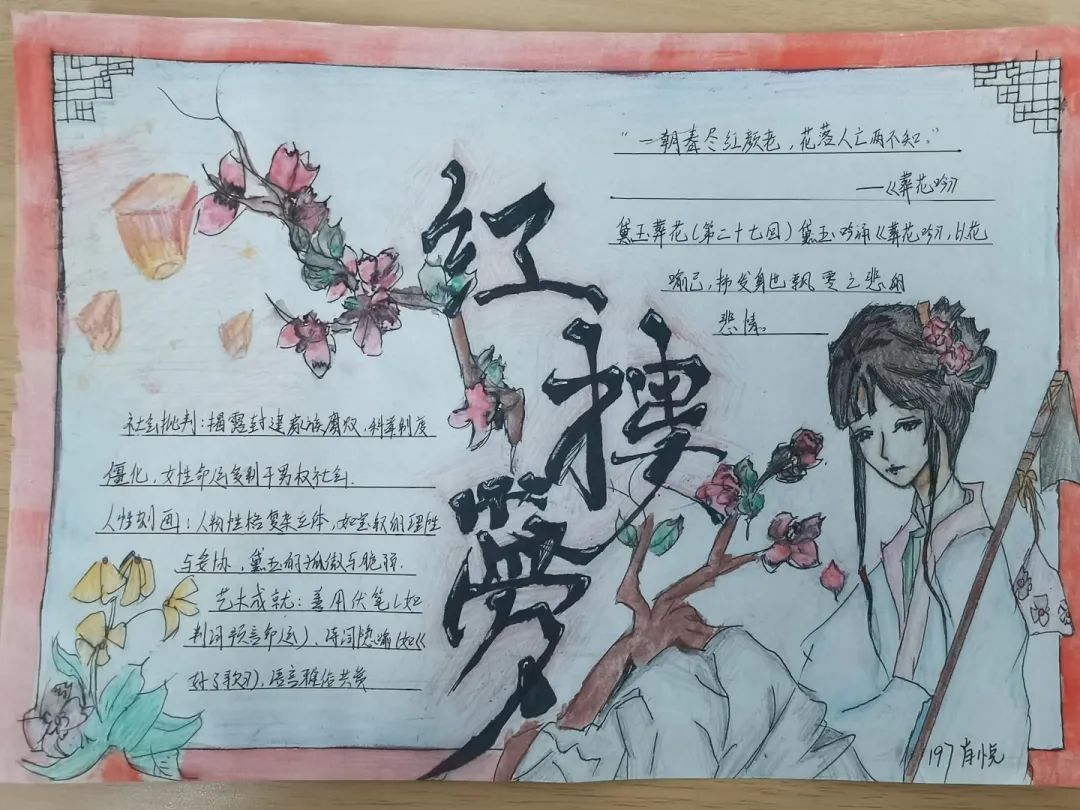 红楼梦
"一朝春尽红颜老，花落人亡两不知。"
——《葬花吟》
黛玉葬花（第二十七回）黛玉吟诵《葬花吟》，以花
喻己，抒发身世飘零之悲的
悲情。
社会批判：揭露封建家族腐败，科举制度
僵化，女性命运多制于男权社会.
人性刻画：人物性格复杂立体，如宝钗的理性
与妥协，黛玉的孤傲与脆弱.
艺术成就：善用伏笔（如
判词预言命运）、诗词隐喻（如《
好了歌》），语言雅俗共赏
197 肖悦